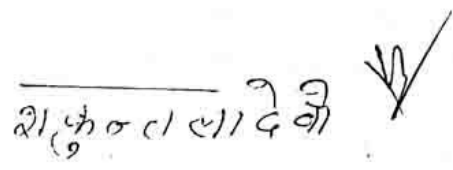 शकुन्तला देवी